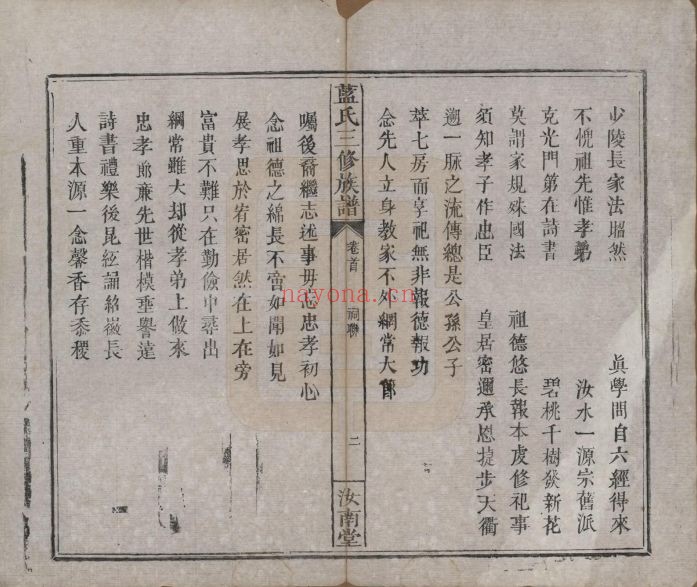 少陵長家法醞然 眞學問自六經得來
不愧祖先惟孝弟 汝水一源宗舊派
克光門第在詩書 碧桃千樹發新花
莫謂家規殊國法 祖德悠長報本虔修祀事
須知孝子作忠臣 皇居密邇承恩捷步天衢
遡一脉之流傳總是公孫公子
萃七房而享祀無非報德報功
念先人立身教家不外綱常大節
藍氏三修族譜
卷首
祠聯
二
汝南堂
囑後裔繼志述事毋忘忠孝初心
念祖德之綿長不啻如聞如見
展孝思於宥密居然在上在旁
富貴不難只在勤儉中尋出
綱常雖大却從孝弟上做來
忠孝節廉先世楷模垂譽遠
詩書禮樂後昆絃誦紹徽長
人重本源一念馨香存黍稷
nayona.cn